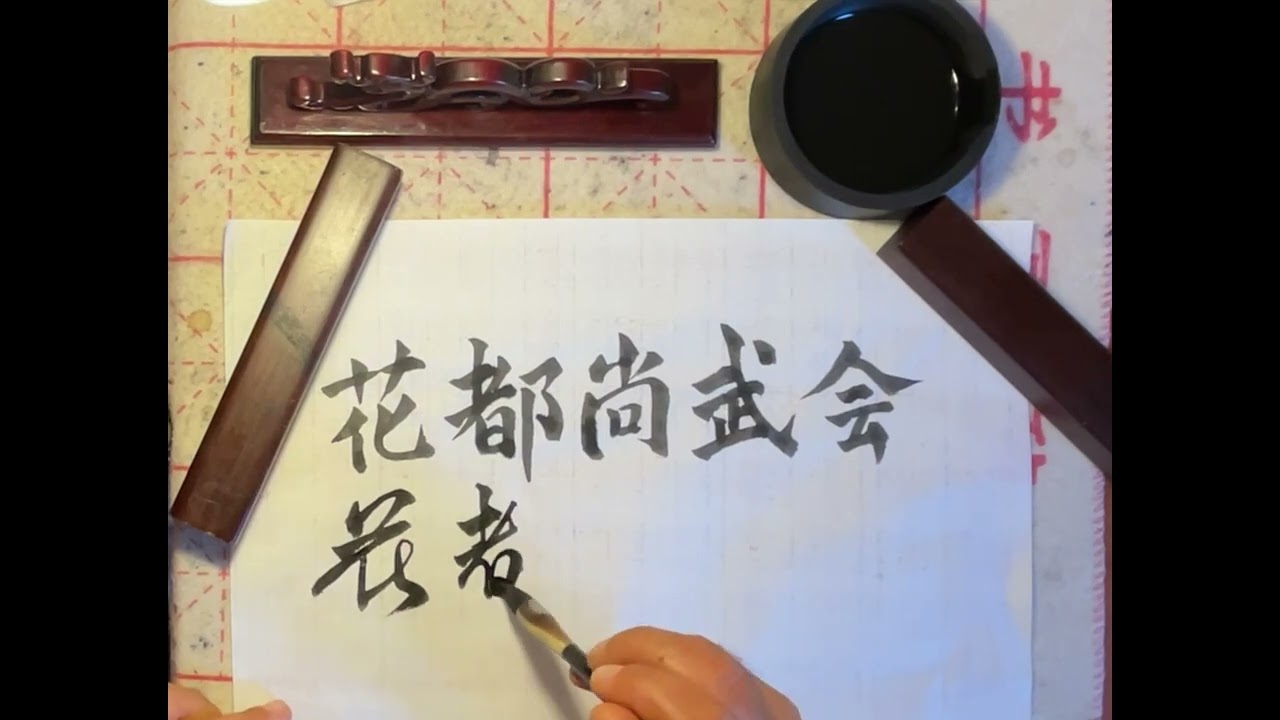 花都尚武会
花者
书